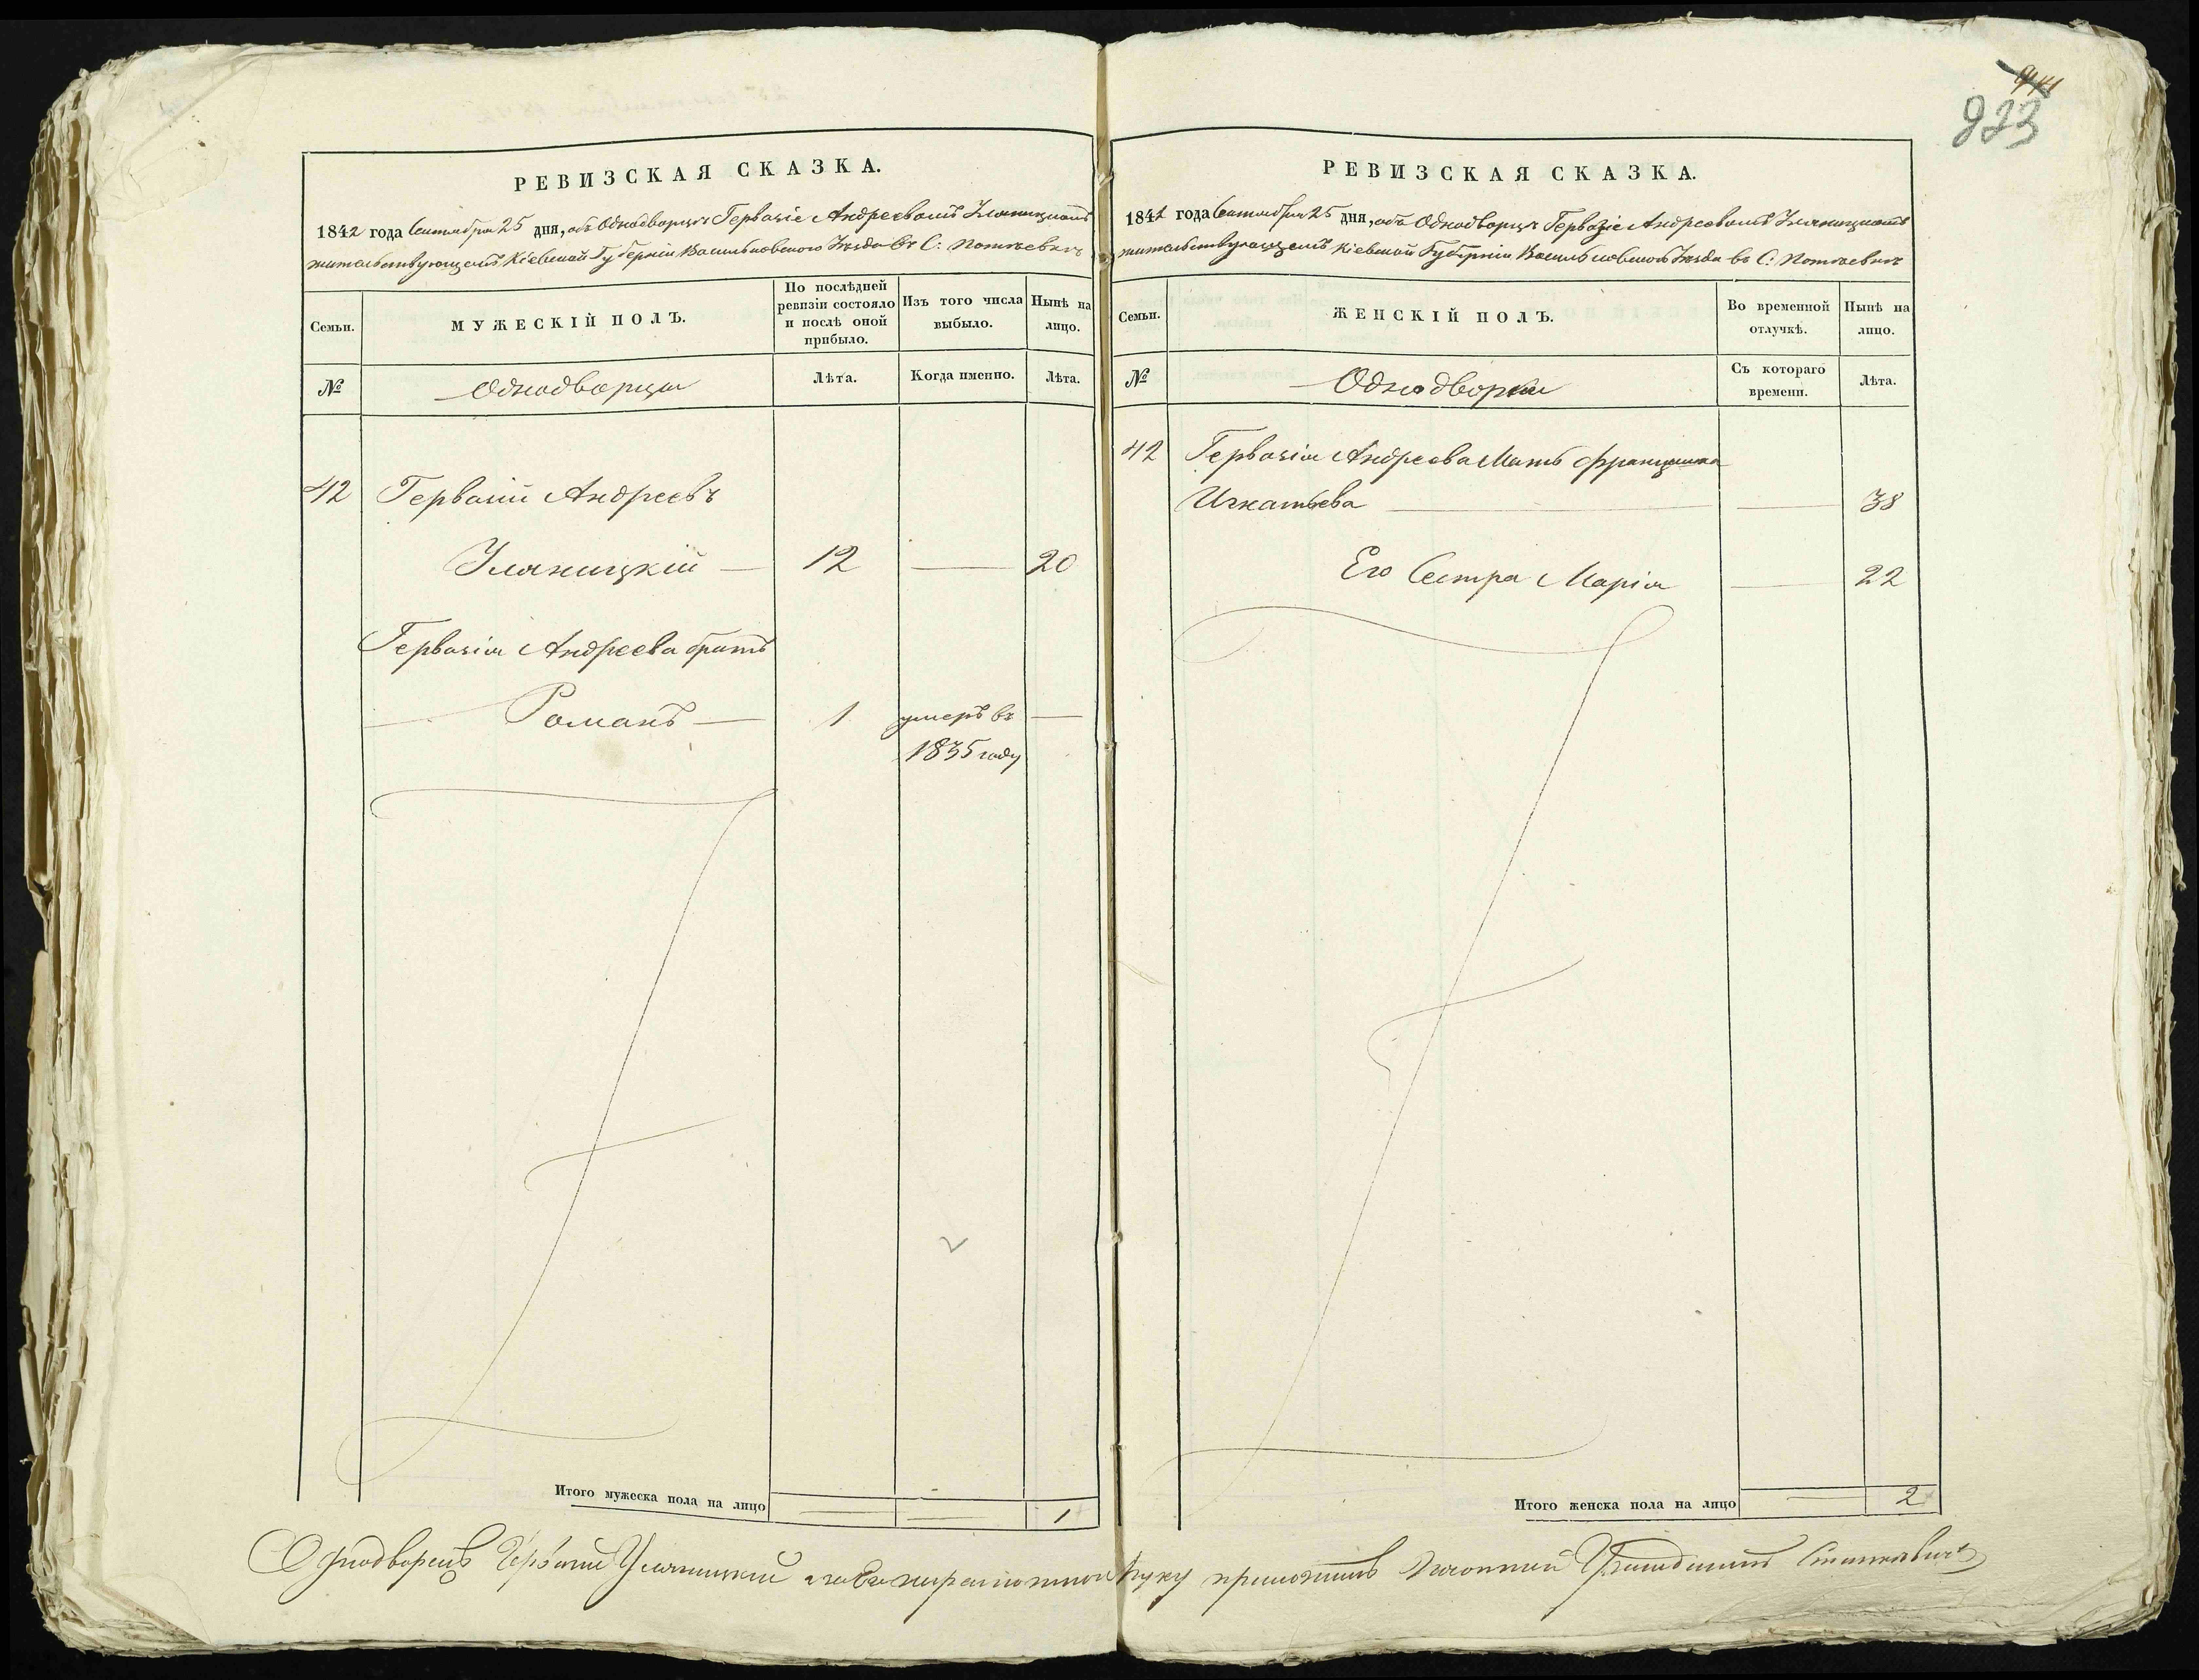 823
РЕВИЗСКАЯ СКАЗКА.
1842 года Сентября 25 дня, объ Однодворцѣ Гервазіе Андреевомъ Уляницкомъ
жительствующемъ Кіевской Губерніи Васильковскаго Уѣзда въ С: Потіевкѣ
Семьи.
МУЖЕСКІЙ ПОЛЪ.
По послѣдней ревизіи состояло и послѣ оной прибыло.
Изъ того числа выбыло.
Нынѣ на лицо.
№
Однодворцы
Лѣта.
Когда именно.
Лѣта.
42 Гервазій Андреевъ
Уляницкій — 12 — 20
Гервазія Андреева братъ
Романъ — 1 умеръ въ —
1835 году
Итого мужеска пола на лицо 1
РЕВИЗСКАЯ СКАЗКА.
1842 года Сентября 25 дня, объ Однодворцѣ Гервазіе Андреевомъ Уляницкомъ
жительствующемъ Кіевской Губерніи Васильковскаго Уѣзда въ С: Потіевкѣ
Семьи.
ЖЕНСКІЙ ПОЛЪ.
Во временной отлучкѣ.
Нынѣ на лицо.
№
Однодворки
Съ котораго времени.
Лѣта.
42 Гервазія Андреева Мать Францишка
Игнатьева — — 38
Его Сестра Марія — 22
Итого женска пола на лицо 2
Однодворецъ Гервазій Уляницкій а за его неграмотного руку приложилъ Станкевичъ